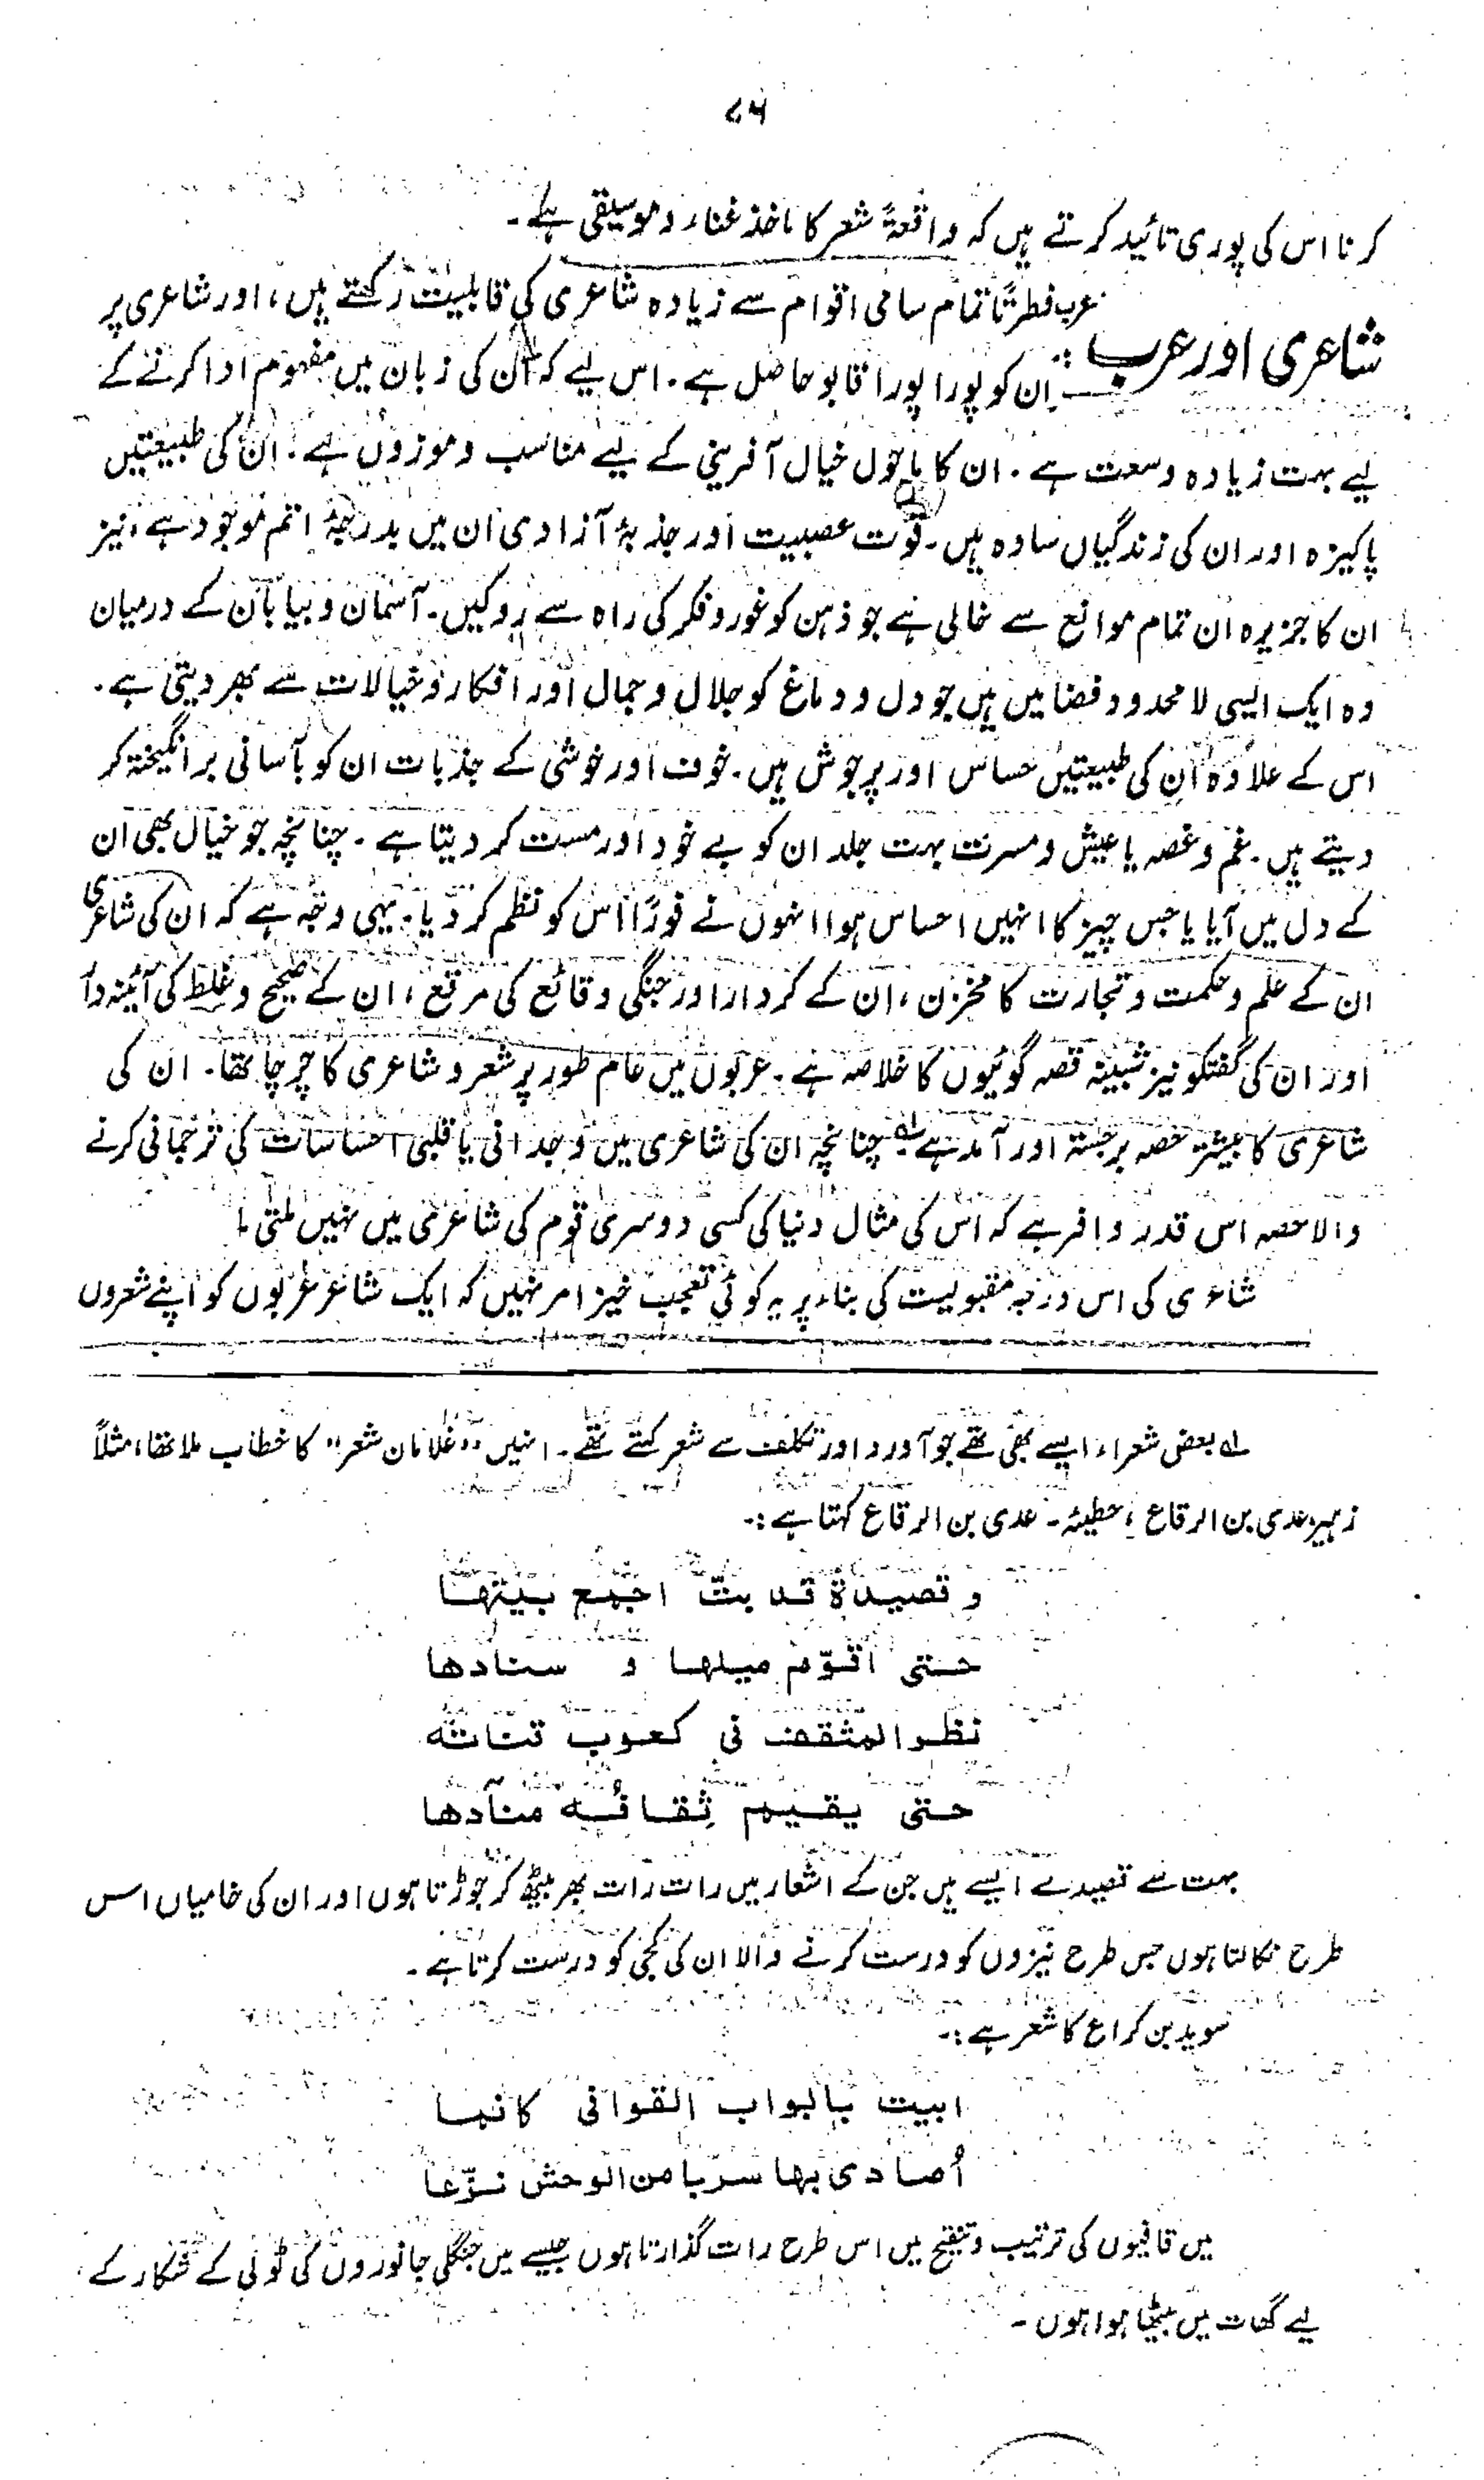 ۷۶
کرنا اس کی پوری تائید کرتے ہیں کہ واقعۃً شعر کا ماخذ غناء و موسیقی ہے۔
عرب فطرتًا تمام سامی اقوام سے زیادہ شاعری کی قابلیت رکھتے ہیں، اور شاعری پر
شاعری اور عرب :
ان کو پورا پورا قابو حاصل ہے۔ اس لیے کہ ان کی زبان میں مفہوم ادا کرنے کے
لیے بہت زیادہ وسعت ہے۔ ان کا ماحول خیال آفرینی کے لیے مناسب و موزوں ہے۔ ان کی طبیعتیں
پاکیزہ اور ان کی زندگیاں سادہ ہیں۔ قوت عصبیت اور جذبۂ آزادی ان میں بدرجۂ اتم موجود ہے، نیز
ان کا جزیرہ ان تمام موانع سے خالی ہے جو ذہن کو غور و فکر کی راہ سے روکیں۔ آسمان و بیابان کے درمیان
وہ ایک ایسی لا محدود فضا میں ہیں جو دل و دماغ کو جلال و جمال اور افکار و خیالات سے بھر دیتی ہے۔
اس کے علاوہ ان کی طبیعتیں حساس اور پرجوش ہیں۔ خوف اور خوشی کے جذبات ان کو بآسانی برانگیختہ کر
دیتے ہیں۔ غم و غصہ یا عیش و مسرت بہت جلد ان کو بے خود اور مست کر دیتا ہے۔ چنانچہ جو خیال بھی ان
کے دل میں آیا یا جس چیز کا انہیں احساس ہوا انہوں نے فورًا اس کو نظم کر دیا۔ یہی وجہ ہے کہ ان کی شاعری
ان کے علم و حکمت و تجارت کا مخزن، ان کے کردار اور جنگی وقائع کی مرقع، ان کے صحیح و غلط کی آئینہ دا
اور ان کی گفتگو نیز شبینہ قصہ گوئیوں کا خلاصہ ہے۔ عربوں میں عام طور پر شعر و شاعری کا چرچا تھا۔ ان کی
شاعری کا بیشتر حصہ برجستہ اور آمد ہے لہ چنانچہ ان کی شاعری میں وجدانی یا قلبی احساسات کی ترجمانی کرنے
والا حصہ اس قدر وافر ہے کہ اس کی مثال دنیا کی کسی دوسری قوم کی شاعری میں نہیں ملتی!
شاعری کی اس درجہ مقبولیت کی بناء پر یہ کوئی تعجب خیز امر نہیں کہ ایک شاعر عربوں کو اپنے شعروں
لہ بعض شعراء ایسے بھی تھے جو آورد اور تکلف سے شعر کہتے تھے۔ انہیں "غلامان شعر" کا خطاب ملا تھا، مثلاً
زہیر عدی بن الرقاع، حطیئہ۔ عدی بن الرقاع کہتا ہے :۔
و قصیدة قد بتّ اجمع بیتھا
حتی اقوّم میلھا و سنادھا
نظر المثقف فی کعوب قناتہ
حتی یقیم ثِقافُہ منآدھا
بہت سے قصیدے ایسے ہیں جن کے اشعار میں رات رات بھر بیٹھ کر جوڑتا ہوں اور ان کی خامیاں اس
طرح نکالتا ہوں جس طرح نیزوں کو درست کرنے والا ان کی کجی کو درست کرتا ہے۔
سوید بن کراع کا شعر ہے :۔
ابیت بابواب القوافی کانما
اُصادی بھا سربا من الوحش نزّعا
میں قافیوں کی ترتیب و تنقیح میں اس طرح رات گذارتا ہوں جیسے میں جنگلی جانوروں کی ٹولی کے شکار کے
لیے گھات میں بیٹھا ہوا ہوں۔